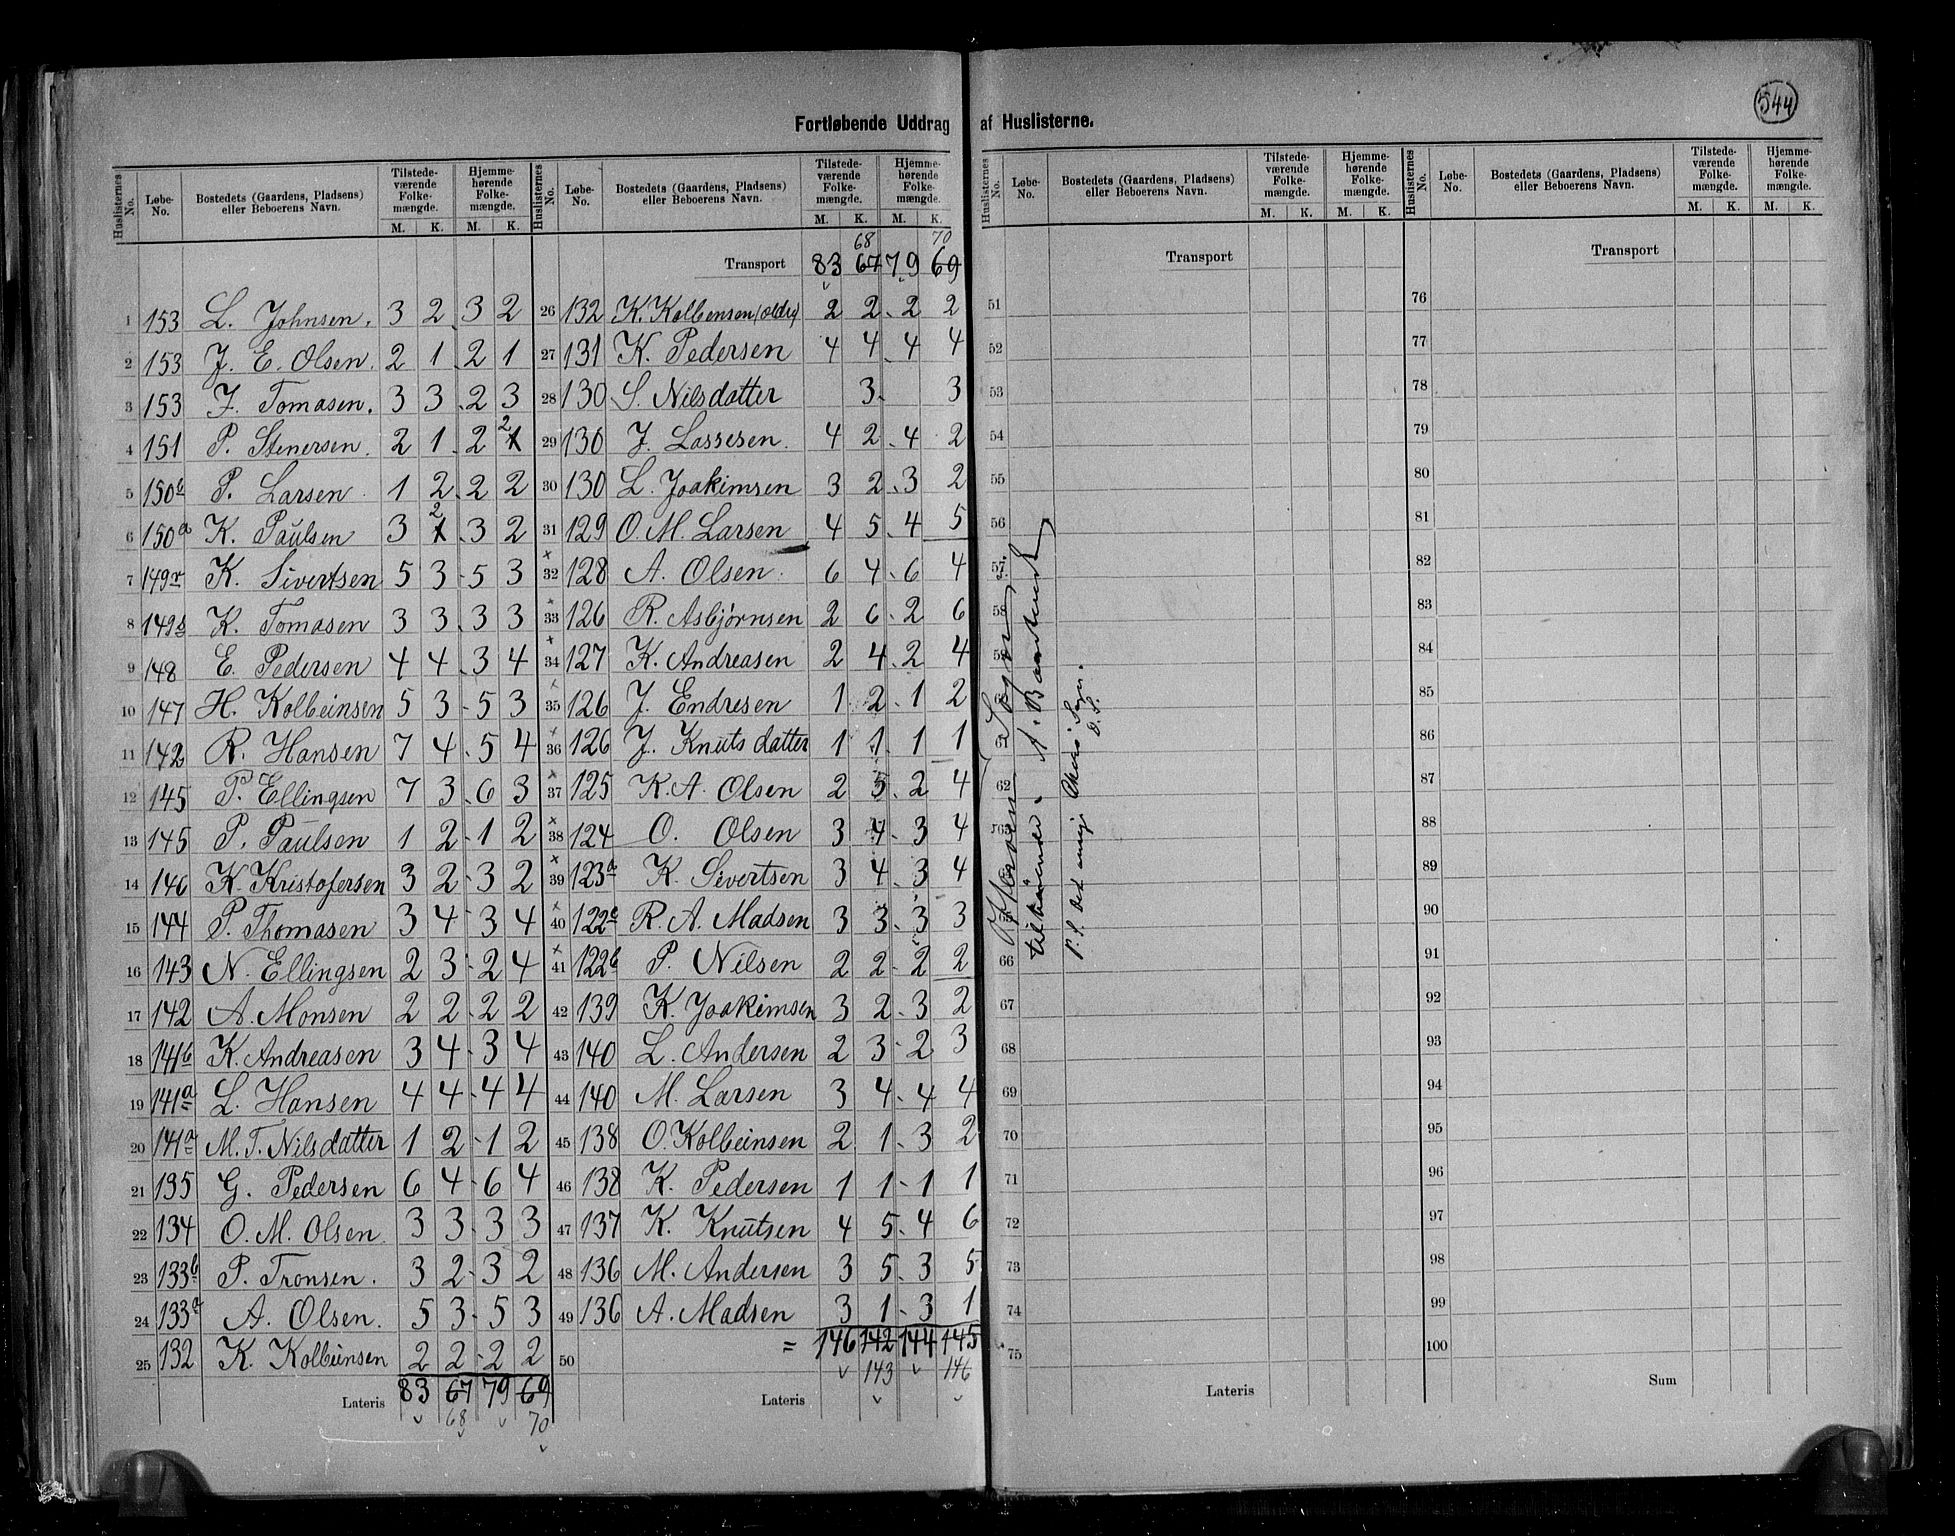 544
Fortløbende Uddrag af Huslisterne.
Huslisternes No. Løbe-No. Bostedets (Gaardens, Pladsens) eller Beboerens Navn. Tilstedeværende Folkemængde. M. K. Hjemmehørende Folkemængde. M. K.
1 153 L. Johnsen. 3 2 3 2
2 153 J. E. Olsen. 2 1 2 1
3 153 J. Tomasen. 3 3 2 3
4 151 P. Stenersen. 2 1 2 1 2
5 150b P. Larsen 1 2 2 2
6 150a K. Paulsen 3 1 2 3 2
7 149 K. Sivertsen 5 3 5 3
8 149 K. Tomasen 3 3 3 3
9 148 E. Pedersen 4 4 3 4
10 147 H. Kolbeinsen 5 3 5 3
11 142 R. Hansen 7 4 5 4
12 145 P. Ellingsen 7 3 6 3
13 145 P. Paulsen 1 2 1 2
14 146 K. Kristofersen 3 2 3 2
15 144 P. Thomasen 3 4 3 4
16 143 N. Ellingsen 2 3 2 4
17 142 A. Monsen 2 2 2 2
18 141b K. Andreasen 3 4 3 4
19 141a L. Hansen 4 4 4 4
20 141a M. T. Nilsdatter 1 2 1 2
21 135 G. Pedersen 6 4 6 4
22 134 O. M. Olsen. 3 3 3 3
23 133b P. Tronsen. 3 2 3 2
24 133a A. Olsen. 5 3 5 3
25 132 K. Kolbeinsen 2 2 2 2
Lateris 83 67 79 69
68 70
Huslisternes No. Løbe-No. Bostedets (Gaardens, Pladsens) eller Beboerens Navn. Tilstedeværende Folkemængde. M. K. Hjemmehørende Folkemængde. M. K.
68 70
Transport 83 67 79 69
26 132 K. Kolbensen (oldre) 2 2 2 2
27 131 K. Pedersen 4 4 4 4
28 130 S. Nilsdatter 3 3
29 130 J. Lassesen. 4 2 4 2
30 130 L. Joakimsen 3 2 3 2
31 129 O. M. Larsen 4 5 4 5
32 128 A. Olsen. 6 4 6 4
33 126 R. Asbjørnsen 2 6 2 6
34 127 K. Andreasen 2 4 2 4
35 126 J. Endresen 1 2 1 2
36 126 J. Knutsdatter 1 1 1 1
37 125 K. A. Olsen 2 5 2 4
38 124 O. Olsen 3 4 3 4
39 123a K. Sivertsen 3 4 3 4
40 122c R. A. Madsen 3 3 3 3
41 122b P. Nilsen 2 2 2 2
42 139 K. Joakimsen 3 2 3 2
43 140 L. Andersen 2 3 2 3
44 140 M. Larsen 3 4 4 4
45 138 O. Kolbeinsen 2 1 3 2
46 138 K. Pedersen 1 1 1 1
47 137 K. Knutsen 4 5 4 6
48 136 M. Andersen 3 5 3 5
49 136 A. Madsen 3 1 3 1
50 = 146 142 144 145
143 146
Lateris
Huslisternes No. Løbe-No. Bostedets (Gaardens, Pladsens) eller Beboerens Navn. Tilstedeværende Folkemængde. M. K. Hjemmehørende Folkemængde. M. K.
Transport
51
52
53
54
55
56
57
58
59
60
61
62
63
64
65
66
67
68
69
70
71
72
73
74
75
Lateris
P. S. Det
D. S.
Huslisternes No. Løbe-No. Bostedets (Gaardens, Pladsens) eller Beboerens Navn. Tilstedeværende Folkemængde. M. K. Hjemmehørende Folkemængde. M. K.
Transport
76
77
78
79
80
81
82
83
84
85
86
87
88
89
90
91
92
93
94
95
96
97
98
99
100
Sum